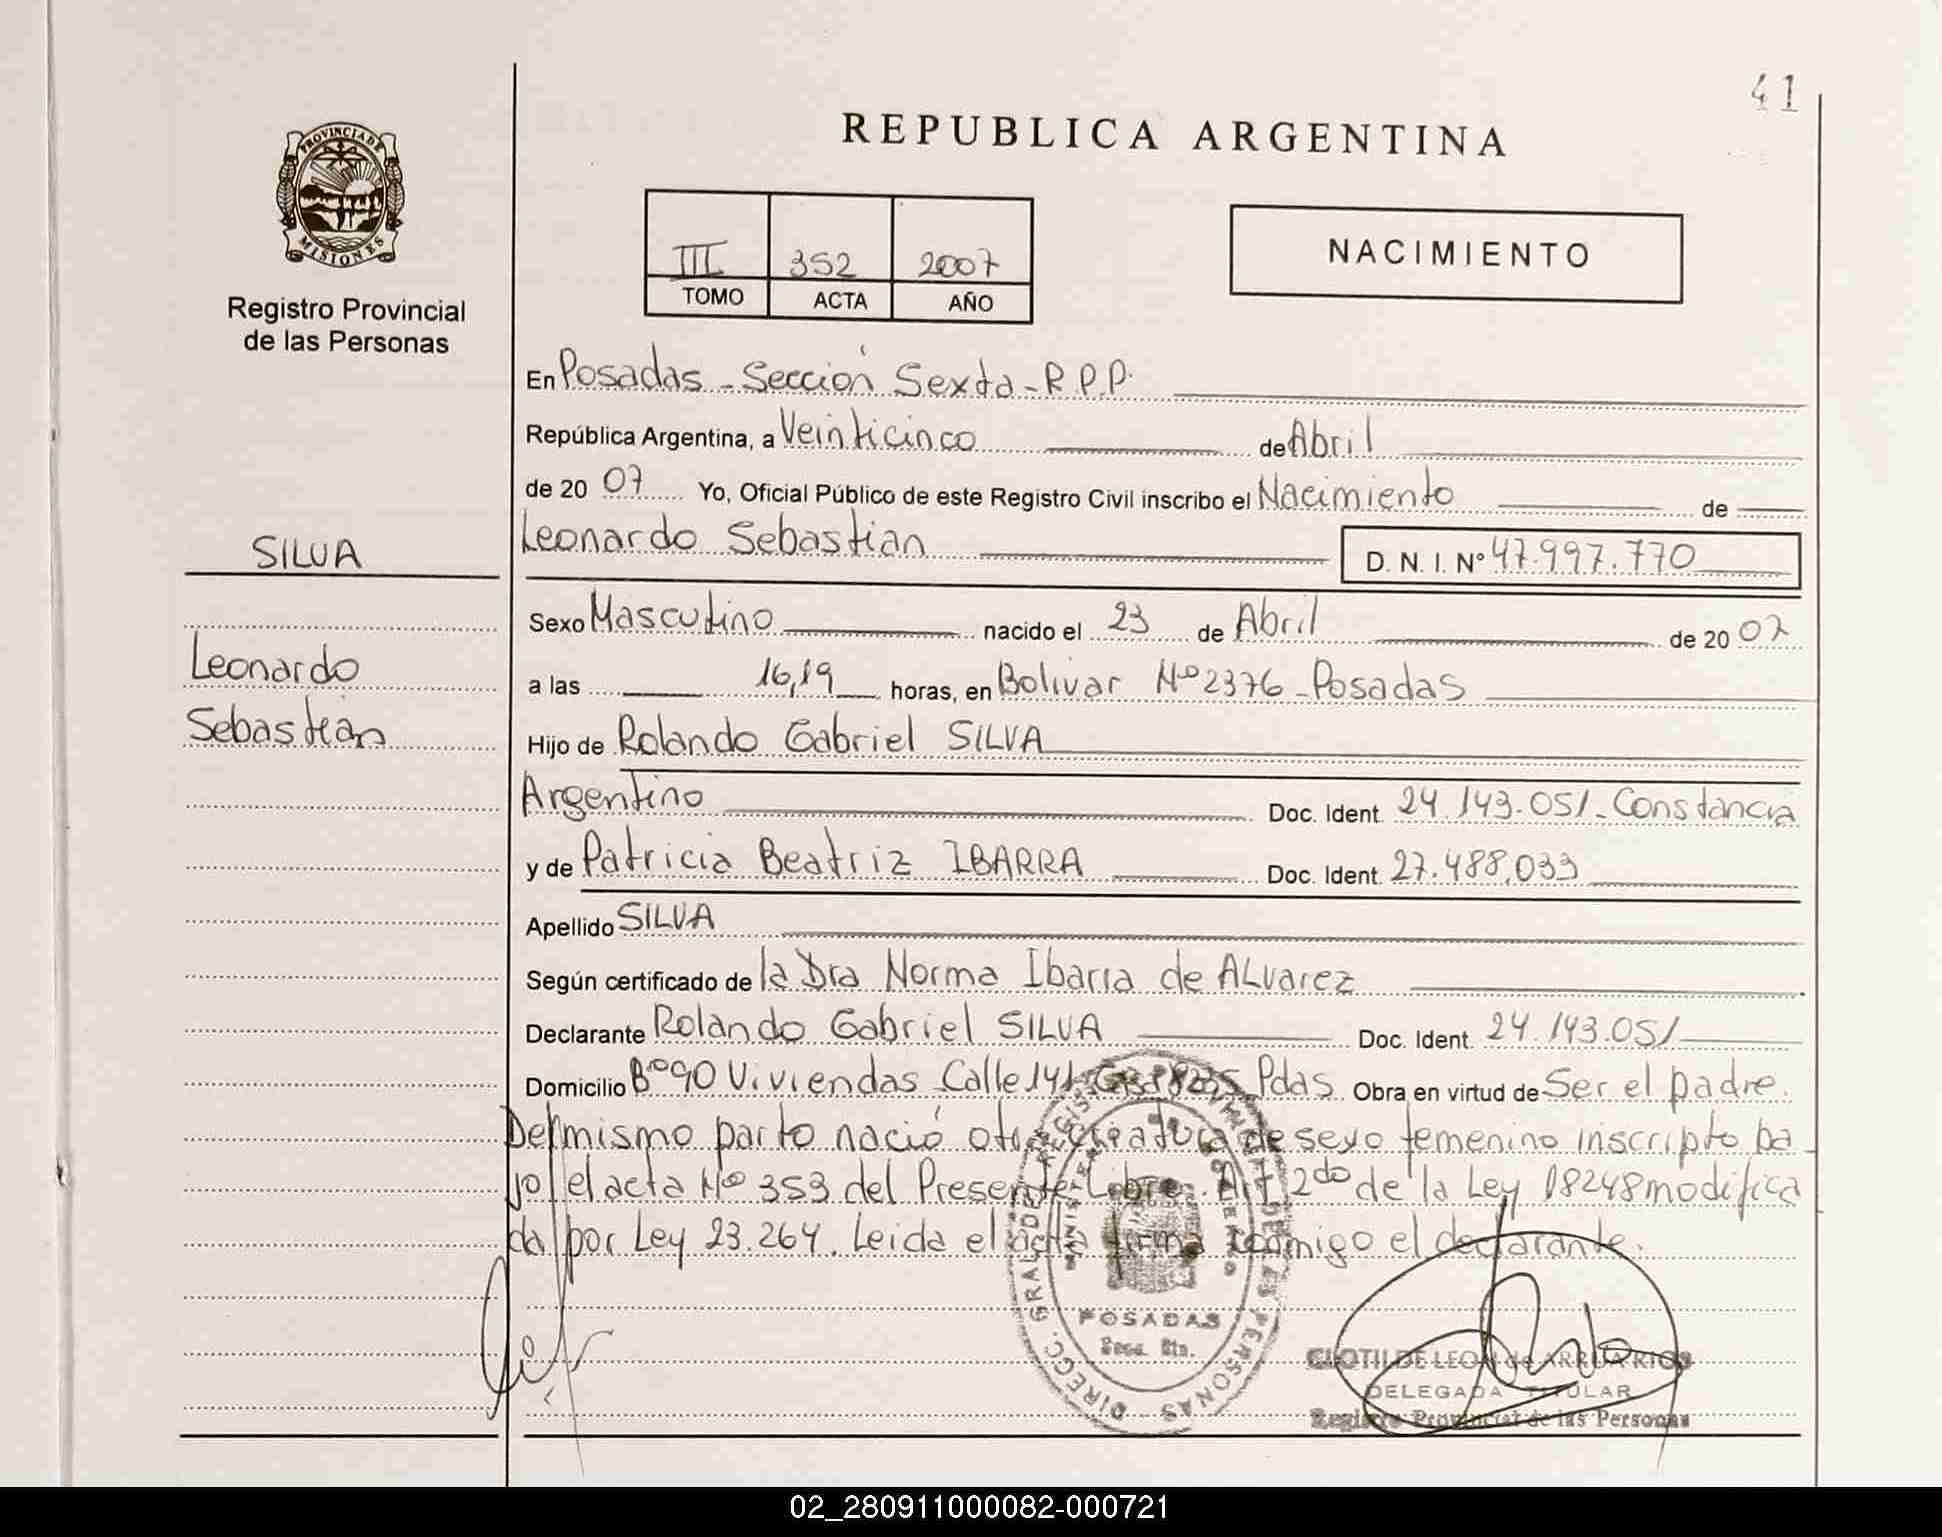 41
REPUBLICA ARGENTINA
PROVINCIA DE
MISIONES
Registro Provincial
de las Personas
III 352 2007
TOMO ACTA AÑO
NACIMIENTO
En Posadas - Sección Sexta - R.P.P.
República Argentina, a Veinticinco de Abril
de 20 07 Yo, Oficial Público de este Registro Civil inscribo el Nacimiento de
SILVA
Leonardo Sebastian D. N. I. Nº 47.997.770
Sexo Masculino nacido el 23 de Abril de 20 07
Leonardo
a las 16,19 horas, en Bolivar Nº 2376 - Posadas
Sebastian
Hijo de Rolando Gabriel SILVA
Argentino Doc. Ident. 24.143.051 - Constancia
y de Patricia Beatriz IBARRA Doc. Ident. 27.488.033
Apellido SILVA
Según certificado de la Dra Norma Ibarra de ALvarez
Declarante Rolando Gabriel SILVA Doc. Ident. 24.143.051
Domicilio Bº 90 Viviendas Calle 141 Pdas. Obra en virtud de Ser el padre.
Del mismo parto nació otra creatura de sexo femenino inscripto ba
jo el acta Nº 353 del Presente Libro. Art 2do de la Ley 18248 modifica
da por Ley 23.264. Leida el acta firma conmigo el declarante.
POSADAS
Secc. 6ta.
DIRECC. GRAL. DE REGISTRO PROVINCIAL DE LAS PERSONAS
MINISTERIO DE GOBIERNO
CLOTILDE LEON de ARRUA RIOS
DELEGADA TITULAR
Registro Provincial de las Personas
02_280911000082-000721